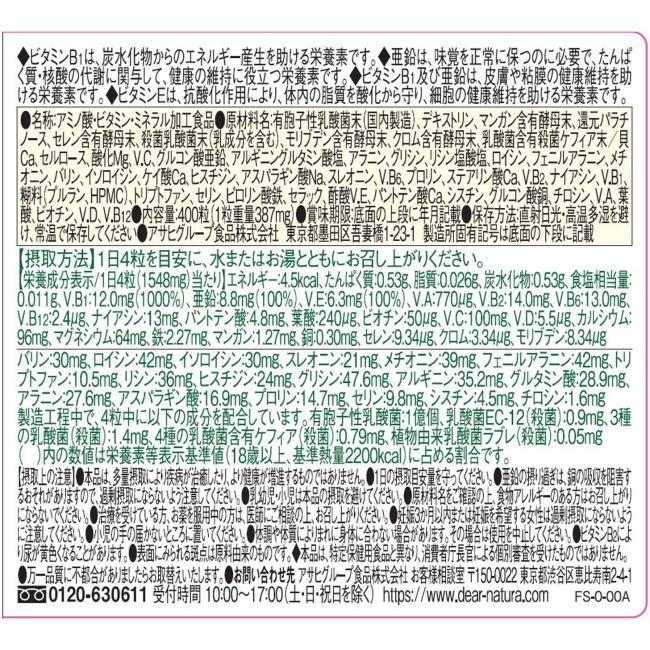 ◆ビタミンB1は、炭水化物からのエネルギー産生を助ける栄養素です。◆亜鉛は、味覚を正常に保つのに必要で、たんぱ
く質・核酸の代謝に関与して、健康の維持に役立つ栄養素です。◆ビタミンB1及び亜鉛は、皮膚や粘膜の健康維持を助
ける栄養素です。◆ビタミンEは、抗酸化作用により、体内の脂質を酸化から守り、細胞の健康維持を助ける栄養素です。
●名称:アミノ酸・ビタミン・ミネラル加工食品●原材料名:有胞子性乳酸菌末(国内製造)、デキストリン、マンガン含有酵母末、還元パラチ
ノース、セレン含有酵母末、殺菌乳酸菌末(乳成分を含む)、モリブデン含有酵母末、クロム含有酵母末、乳酸菌含有殺菌ケフィア末/貝
Ca、セルロース、酸化Mg、V.C、グルコン酸亜鉛、アルギニングルタミン酸塩、アラニン、グリシン、リシン塩酸塩、ロイシン、フェニルアラニン、メチ
オニン、バリン、イソロイシン、ケイ酸Ca、ヒスチジン、アスパラギン酸Na、スレオニン、V.B6、プロリン、ステアリン酸Ca、V.B2、ナイアシン、V.B1、
糊料(プルラン、HPMC)、トリプトファン、セリン、ピロリン酸鉄、セラック、酢酸V.E、パントテン酸Ca、シスチン、グルコン酸銅、チロシン、V.A、葉
酸、ビオチン、V.D、V.B12●内容量:400粒(1粒重量387mg)●賞味期限:底面の上段に年月記載●保存方法:直射日光・高温多湿を避
け、常温で保存してください●アサヒグループ食品株式会社 東京都墨田区吾妻橋1-23-1 製造所固有記号は底面の下段に記載
【摂取方法】1日4粒を目安に、水またはお湯とともにお召し上がりください。
【栄養成分表示/1日4粒(1548mg)当たり】エネルギー:4.5kcal、たんぱく質:0.53g、脂質:0.026g、炭水化物:0.53g、食塩相当量:
0.011g、V.B1:12.0mg(1000%)、亜鉛:8.8mg(100%)、V.E:6.3mg(100%)、V.A:770μg、V.B2:14.0mg、V.B6:13.0mg、
V.B12:2.4μg、ナイアシン:13mg、パントテン酸:4.8mg、葉酸:240μg、ビオチン:50μg、V.C:100mg、V.D:5.5μg、カルシウム:
96mg、マグネシウム:64mg、鉄:2.27mg、マンガン:1.27mg、銅:0.30mg、セレン:9.34μg、クロム:3.34μg、モリブデン:8.34μg
バリン:30mg、ロイシン:42mg、イソロイシン:30mg、スレオニン:21mg、メチオニン:39mg、フェニルアラニン:42mg、トリ
プトファン:10.5mg、リシン:36mg、ヒスチジン:24mg、グリシン:47.6mg、アルギニン:35.2mg、グルタミン酸:28.9mg、
アラニン:27.6mg、アスパラギン酸:16.9mg、プロリン:14.7mg、セリン:9.8mg、シスチン:4.5mg、チロシン:1.6mg
製造工程中で、4粒中に以下の成分を配合しています。有胞子性乳酸菌:1億個、乳酸菌EC-12(殺菌):0.9mg、3種
の乳酸菌(殺菌):1.4mg、4種の乳酸菌含有ケフィア(殺菌):0.79mg、植物由来乳酸菌ラブレ(殺菌):0.05mg
( )内の数値は栄養素等表示基準値(18歳以上、基準熱量2200kcal)に占める割合です。
【摂取上の注意】●本品は、多量摂取により疾病が治癒したり、より健康が増進するものではありません。●1日の摂取目安量を守ってください。●亜鉛の摂り過ぎは、銅の吸収を阻害す
るおそれがありますので、過剰摂取にならないよう注意してください。●乳幼児・小児は本品の摂取を避けてください。●原材料名をご確認の上、食物アレルギーのある方はお召し上がり
にならないでください。●治療を受けている方、お薬を服用中の方は、医師にご相談の上、お召し上がりください。●妊娠3か月以内または妊娠を希望する女性は過剰摂取にならないよう
に注意してください。●小児の手の届かないところに置いてください。●体調や体質によりまれに身体に合わない場合があります。その場合は使用を中止してください。●ビタミンB2によ
り尿が黄色くなることがあります。●表面にみられる斑点は原料由来のものです。◆本品は、特定保健用食品と異なり、消費者庁長官による個別審査を受けたものではありません。
●万一品質に不都合がありましたらお取替えいたします。●お問い合わせ先 アサヒグループ食品株式会社 お客様相談室 〒150-0022 東京都渋谷区恵比寿南2-4-1
0120-630611 受付時間 10:00〜17:00(土・日・祝日を除く) https://www.dear-natura.com FS-O-00A